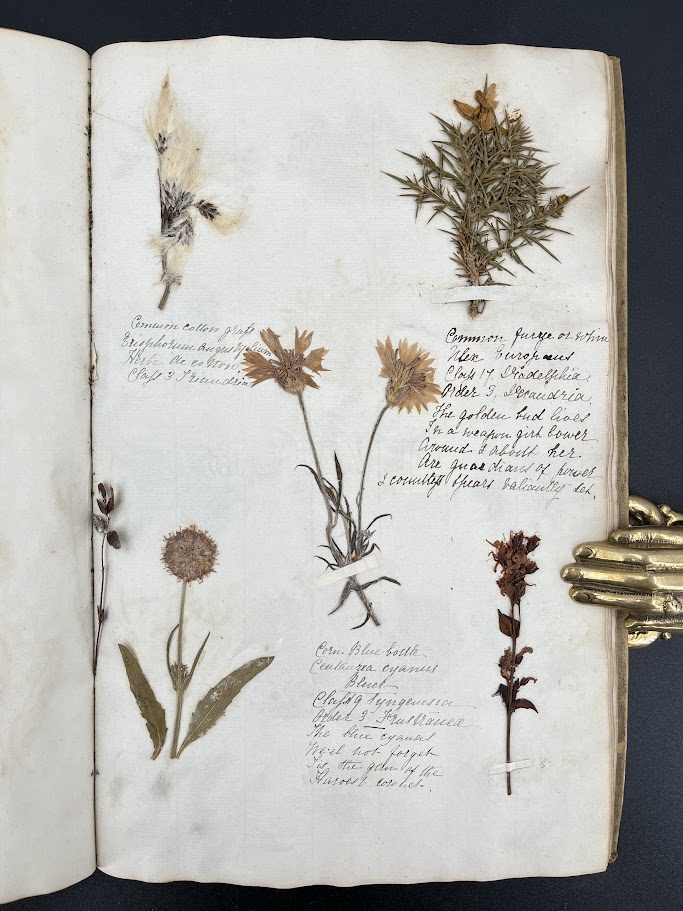 Common cotton grass
Eriophorum angustifolium
Class 3 Triandria
Common furze or Whin
Ulex Europeus
Class 17 Diadelphia
Order 3, Decandria,
The golden bud lives
In a weapon girt bower
Around & about her
Are guardians of power
& countless spears valiantly set,
Corn Blue bottle
Centaurea cyanus
Bluet
Class 19 Syngenesia
Order 3 Frustranea
The blue cyanus
We'el not forget
Tis the gem of the
Harvest coronet.